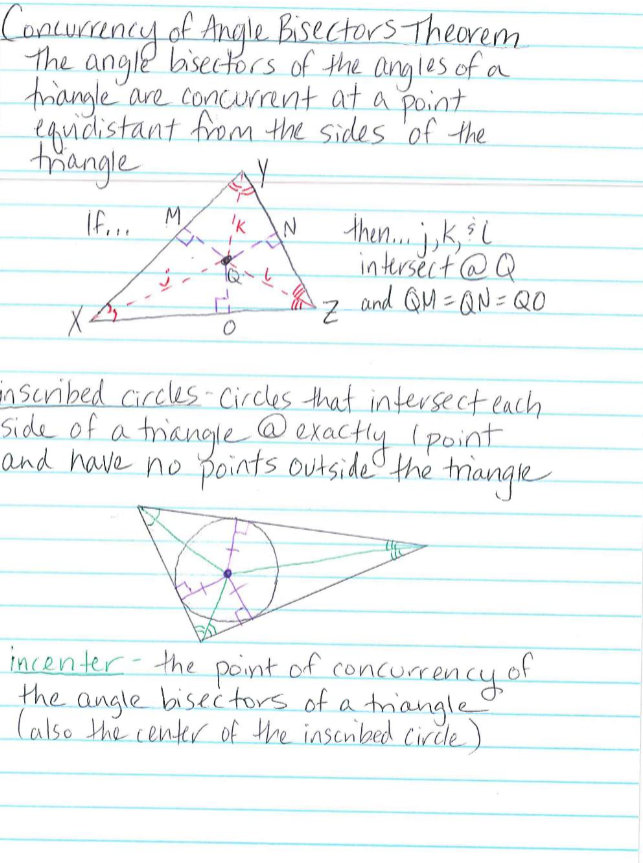 Concurrency of Angle Bisectors Theorem
The angle bisectors of the angles of a
triangle are concurrent at a point
equidistant from the sides of the
triangle
Y
If... M K N then... j, k, & l
j Q l intersect @ Q
X O Z and QM = QN = QO
inscribed circles - circles that intersect each
side of a triangle @ exactly 1 point
and have no points outside the triangle
incenter - the point of concurrency of
the angle bisectors of a triangle
(also the center of the inscribed circle)